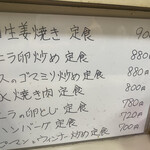 生姜焼き 定食 900
ニラ卵炒め 定食 880
スのゴマミソ炒め定食 880
焼き肉 定食 800
ラの卵とじ 定食 780
ハンバーグ 定食 720
ーマンとウィンナー炒め 定食 700